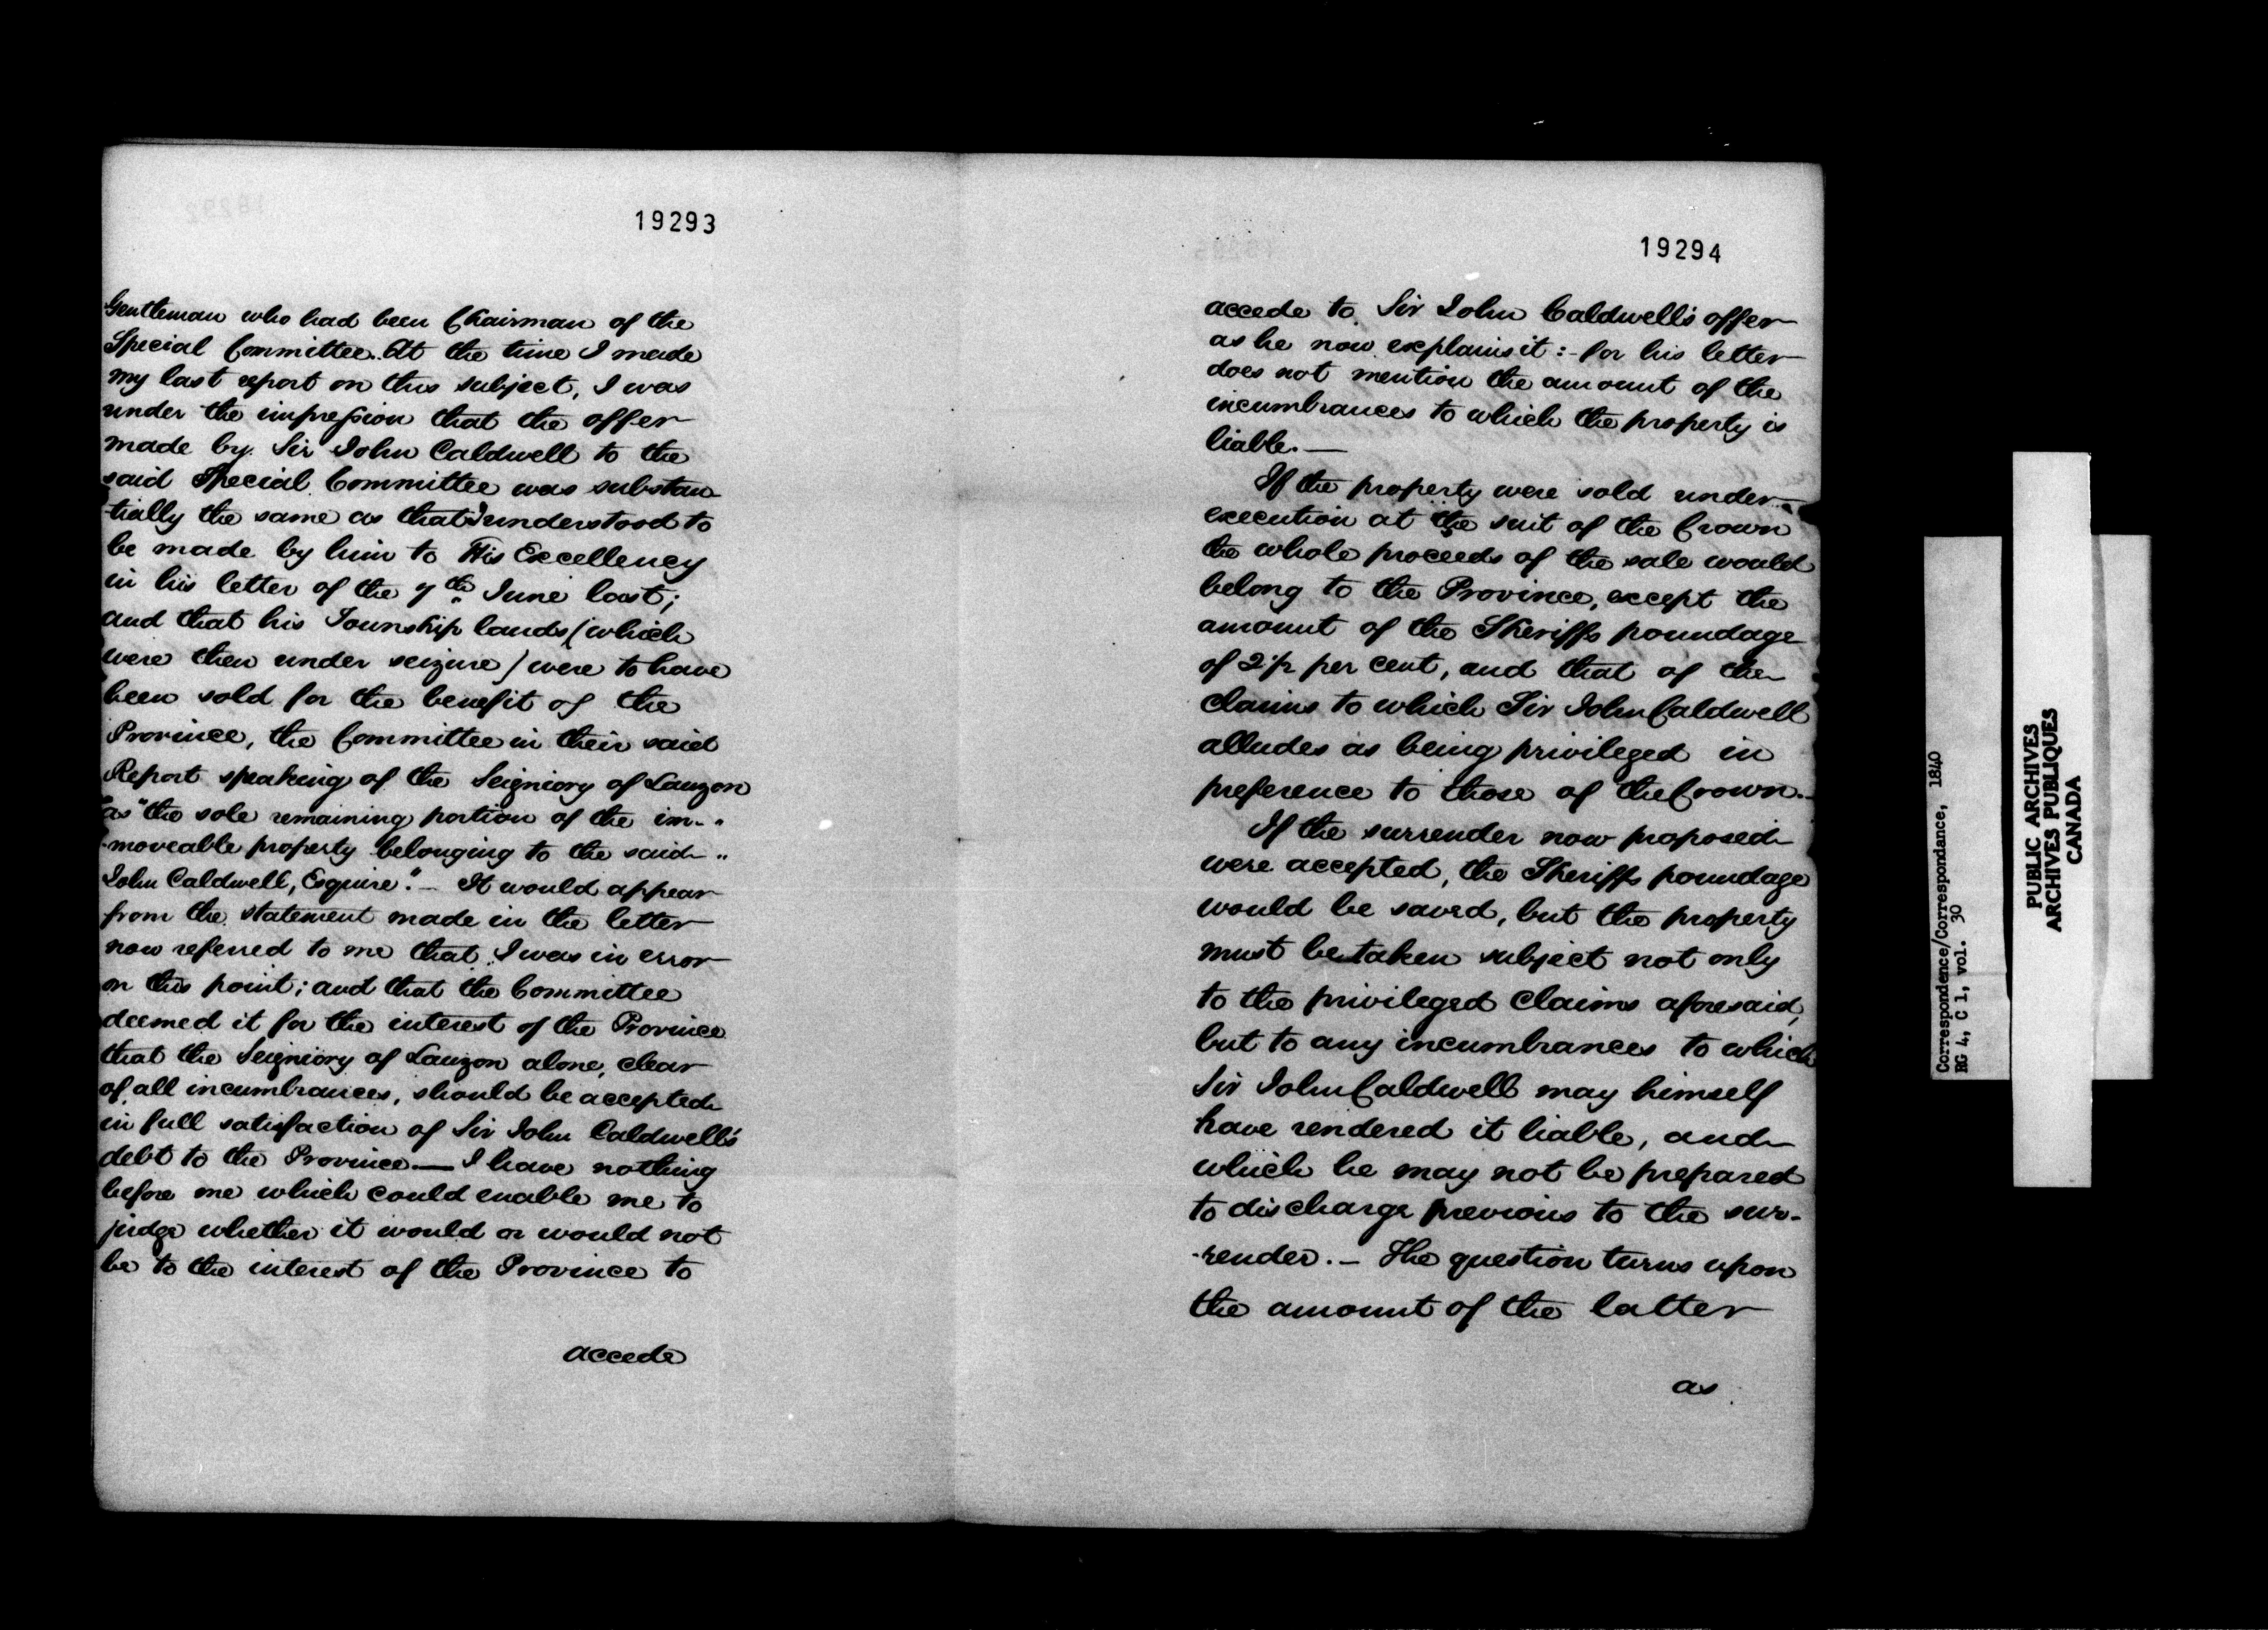 19293
Gentleman who had been Chairman of the
Special Committee. At the time I made
my last report on this subject, I was
under the impression that the offer
made by Sir John Caldwell to the
said Special Committee was substan
-tially the same as that I understood to
be made by him to His Excellency
in his letter of the 7th June last;
and that his Township lands (which
were then under seizure) were to have
been sold for the benefit of the
Province, the Committee in their said
Report speaking of the Seigniory of Lauzon
"as "the sole remaining portion of the im- "
-moveable property belonging to the said "
John Caldwell, Esquire". — It would appear
from the statement made in the letter
now referred to me that I was in error
on this point; and that the Committee
deemed it for the interest of the Province
that the Seigniory of Lauzon alone, clear
of all incumbrances, should be accepted
in full satisfaction of Sir John Caldwell's
debt to the Province. — I have nothing
before me which could enable me to
judge whether it would or would not
be to the interest of the Province to
accede
19294
accede to Sir John Caldwell's offer
as he now explains it :- for his letter
does not mention the amount of the
incumbrances to which the property is
liable. —
If the property were sold under
execution at the suit of the Crown
the whole proceeds of the sale would
belong to the Province, except the
amount of the Sheriffs poundage
of 2½ per cent, and that of the
claims to which Sir John Caldwell
alludes as being privileged in
preference to those of the Crown. —
If the surrender now proposed
were accepted, the Sheriffs poundage
would be saved, but the property
must be taken subject not only
to the privileged claims aforesaid,
but to any incumbrances to which
Sir John Caldwell may himself
have rendered it liable, and
which he may not be prepared
to discharge previous to the sur-
-render. — The question turns upon
the amount of the latter
as
Correspondence/Correspondance, 1840
RG 4, C 1, vol. 30
PUBLIC ARCHIVES
ARCHIVES PUBLIQUES
CANADA